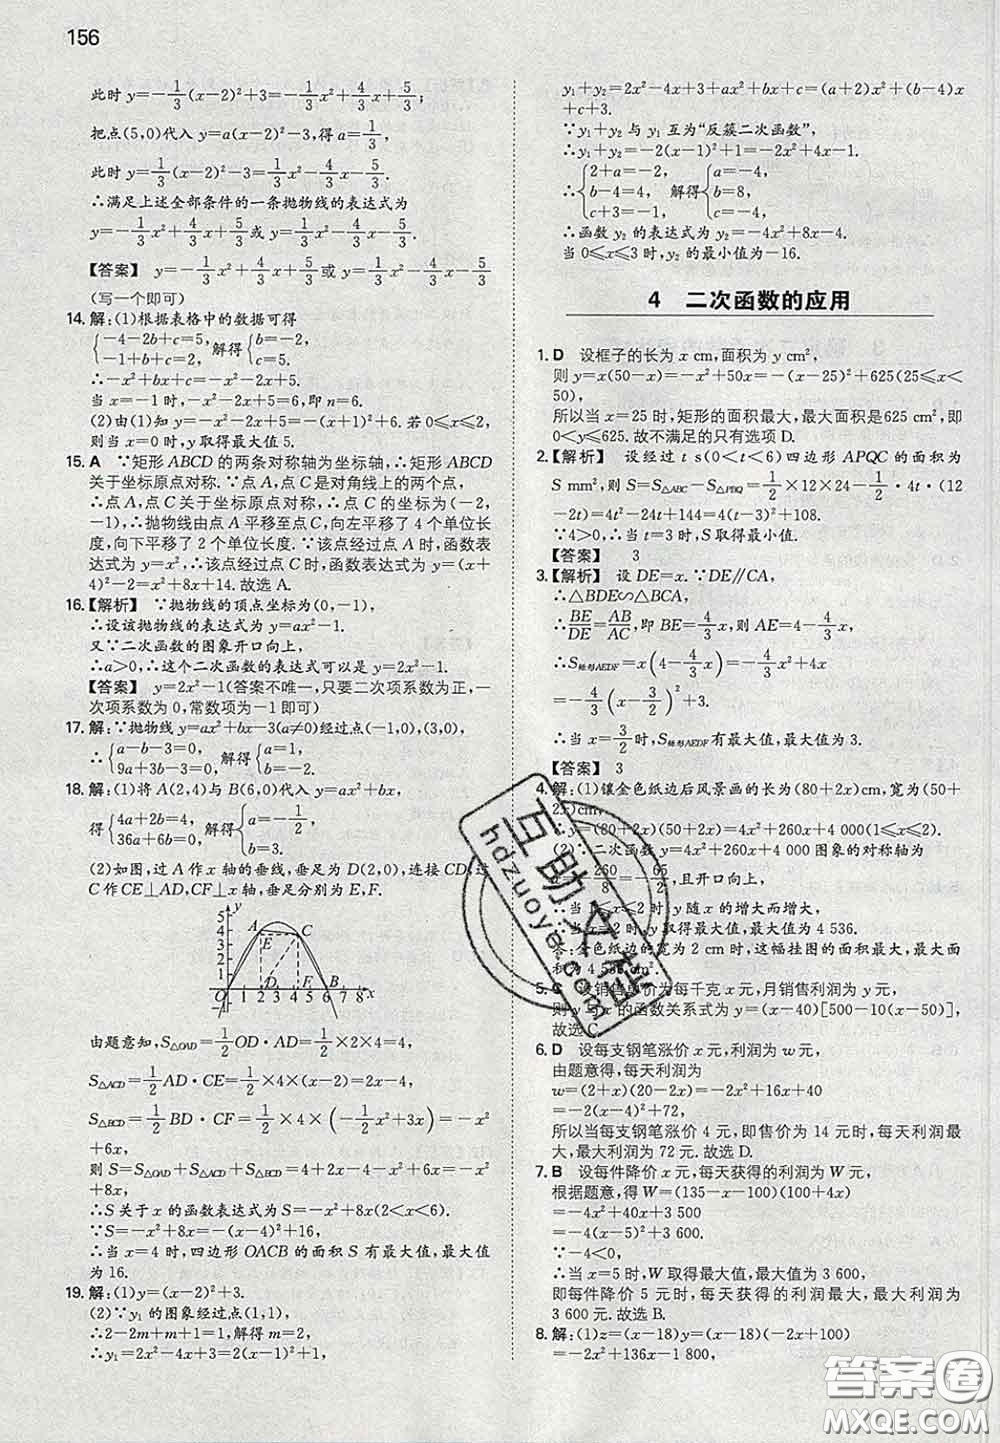 156
此时 y=-1/3(x-2)²+3=-1/3x²+4/3x+5/3;
把点(5,0)代入 y=a(x-2)²-3,得 a=1/3,
此时 y=1/3(x-2)²-3=1/3x²-4/3x-5/3.
∴满足上述全部条件的一条抛物线的表达式为
y=-1/3x²+4/3x+5/3或 y=1/3x²-4/3x-5/3.
【答案】 y=-1/3x²+4/3x+5/3或 y=1/3x²-4/3x-5/3
(写一个即可)
14.解:(1)根据表格中的数据可得
{-4-2b+c=5, c=5, 解得{b=-2, c=5.
∴-x²+bx+c=-x²-2x+5.
当 x=-1时,-x²-2x+5=6,即 n=6.
(2)由(1)知 y=-x²-2x+5=-(x+1)²+6.
则当 x=0时,y取得最大值5.
15.A ∵矩形 ABCD 的两条对称轴为坐标轴,∴矩形 ABCD
关于坐标原点对称.∵点 A,点 C是对角线上的两个点,
∴点 A,点 C关于坐标原点对称,∴点 C的坐标为(-2,
-1),∴抛物线由点 A平移至点 C,向左平移了 4 个单位长
度,向下平移了 2 个单位长度.∵该点经过点 A 时,函数表
达式为 y=x²,∴该点经过点 C时,函数表达式为 y=(x+
4)²-2=x²+8x+14.故选 A.
16.【解析】 ∵抛物线的顶点坐标为(0,-1),
∴设该抛物线的表达式为 y=ax²-1.
又∵二次函数的图象开口向上,
∴a>0,∴这个二次函数的表达式可以是 y=2x²-1.
【答案】 y=2x²-1(答案不唯一,只要二次项系数为正,一
次项系数为 0,常数项为-1即可)
17.解:∵抛物线 y=ax²+bx-3(a≠0)经过点(-1,0),(3,0),
∴{a-b-3=0, 9a+3b-3=0, 解得{a=1, b=-2.
18.解:(1)将 A(2,4)与 B(6,0)代入 y=ax²+bx,
得{4a+2b=4, 36a+6b=0, 解得{a=-1/2, b=3.
(2)如图,过 A 作 x 轴的垂线,垂足为 D(2,0),连接 CD,过
C作 CE⊥AD,CF⊥x轴,垂足分别为 E,F.
y
5
4
3
2
1
A
C
E
D
F
B
O
1 2 3 4 5 6 7 8 x
由题意知,S△OAD=1/2OD·AD=1/2×2×4=4,
S△ACD=1/2AD·CE=1/2×4×(x-2)=2x-4,
S△BCD=1/2BD·CF=1/2×4×(-1/2x²+3x)=-x²
+6x,
则 S=S△OAD+S△ACD+S△BCD=4+2x-4-x²+6x=-x²+8x,
∴S关于 x的函数表达式为 S=-x²+8x(2<x<6).
∵S=-x²+8x=-(x-4)²+16,
∴当 x=4 时,四边形 OACB 的面积 S 有最大值,最大值
为 16.
19.解:(1)y=(x-2)²+3.
(2)∵y₁的图象经过点(1,1),
∴2-2m+m+1=1,解得 m=2,
∴y₁=2x²-4x+3=2(x-1)²+1,
y₁+y₂=2x²-4x+3+ax²+bx+c=(a+2)x²+(b-4)x
+c+3.
∵y₁+y₂ 与 y₁互为“反簇二次函数”,
∴y₁+y₂=-2(x-1)²+1=-2x²+4x-1.
∴{2+a=-2, b-4=4, c+3=-1, 解得{a=-4, b=8, c=-4.
∴函数 y₂的表达式为 y=-4x²+8x-4.
当 0≤x≤3时,y₂的最小值为-16.
4 二次函数的应用
1.D 设框子的长为 x cm,面积为 y cm²,
则 y=x(50-x)=-x²+50x=-(x-25)²+625(25≤x<
50),
所以当 x=25时,矩形的面积最大,最大面积是625 cm²,即
0<y≤625.故不满足的只有选项 D.
2.【解析】 设经过 t s(0<t<6)四边形 APQC 的面积为
S mm²,则 S=S△ABC-S△PBQ=1/2×12×24-1/2·4t·(12
-2t)=4t²-24t+144=4(t-3)²+108.
∵4>0,∴当 t=3时,S取得最小值.
【答案】 3
3.【解析】 设 DE=x.∵DE∥CA,
∴△BDE∽△BCA,
∴BE/DE=AB/AC,即 BE=4/3x,则 AE=4-4/3x,
∴S矩形AEDF=x(4-4/3x)=-4/3x²+4x
=-4/3(x-3/2)²+3.
∴当 x=3/2时,S矩形AEDF有最大值,最大值为 3.
【答案】 3
4.解:(1)镶金色纸边后风景画的长为(80+2x)cm,宽为(50+
2x)cm,
∴y=(80+2x)(50+2x)=4x²+260x+4 000(1≤x≤2).
(2)∵二次函数 y=4x²+260x+4 000图象的对称轴为
x=-260/8=-65/2,且开口向上,
∴当 1≤x≤2时 y随 x的增大而增大,
∴当 x=2时,y取得最大值,最大值为 4 536.
答:金色纸边的宽为 2 cm 时,这幅挂图的面积最大,最大面
积为 4 536 cm².
5.C 设销售单价为每千克 x元,月销售利润为 y元,
则 y与 x的函数关系式为 y=(x-40)[500-10(x-50)],
故选 C.
6.D 设每支钢笔涨价 x元,利润为 w元,
由题意得,每天利润为
w=(2+x)(20-2x)=-2x²+16x+40
=-2(x-4)²+72,
所以当每支钢笔涨价 4 元,即售价为 14 元时,每天利润最
大,最大利润为 72 元.故选 D.
7.B 设每件降价 x元,每天获得的利润为 W元,
根据题意,得 W=(135-x-100)(100+4x)
=-4x²+40x+3 500
=-4(x-5)²+3 600,
∵-4<0,
∴当 x=5时,W取得最大值,最大值为 3 600,
即每件降价 5 元时,每天获得的利润最大,最大利润为
3 600元.故选 B.
8.解:(1)z=(x-18)y=(x-18)(-2x+100)
=-2x²+136x-1 800,
互助文档
hdzuoye.com
答案圈
MXQE.COM